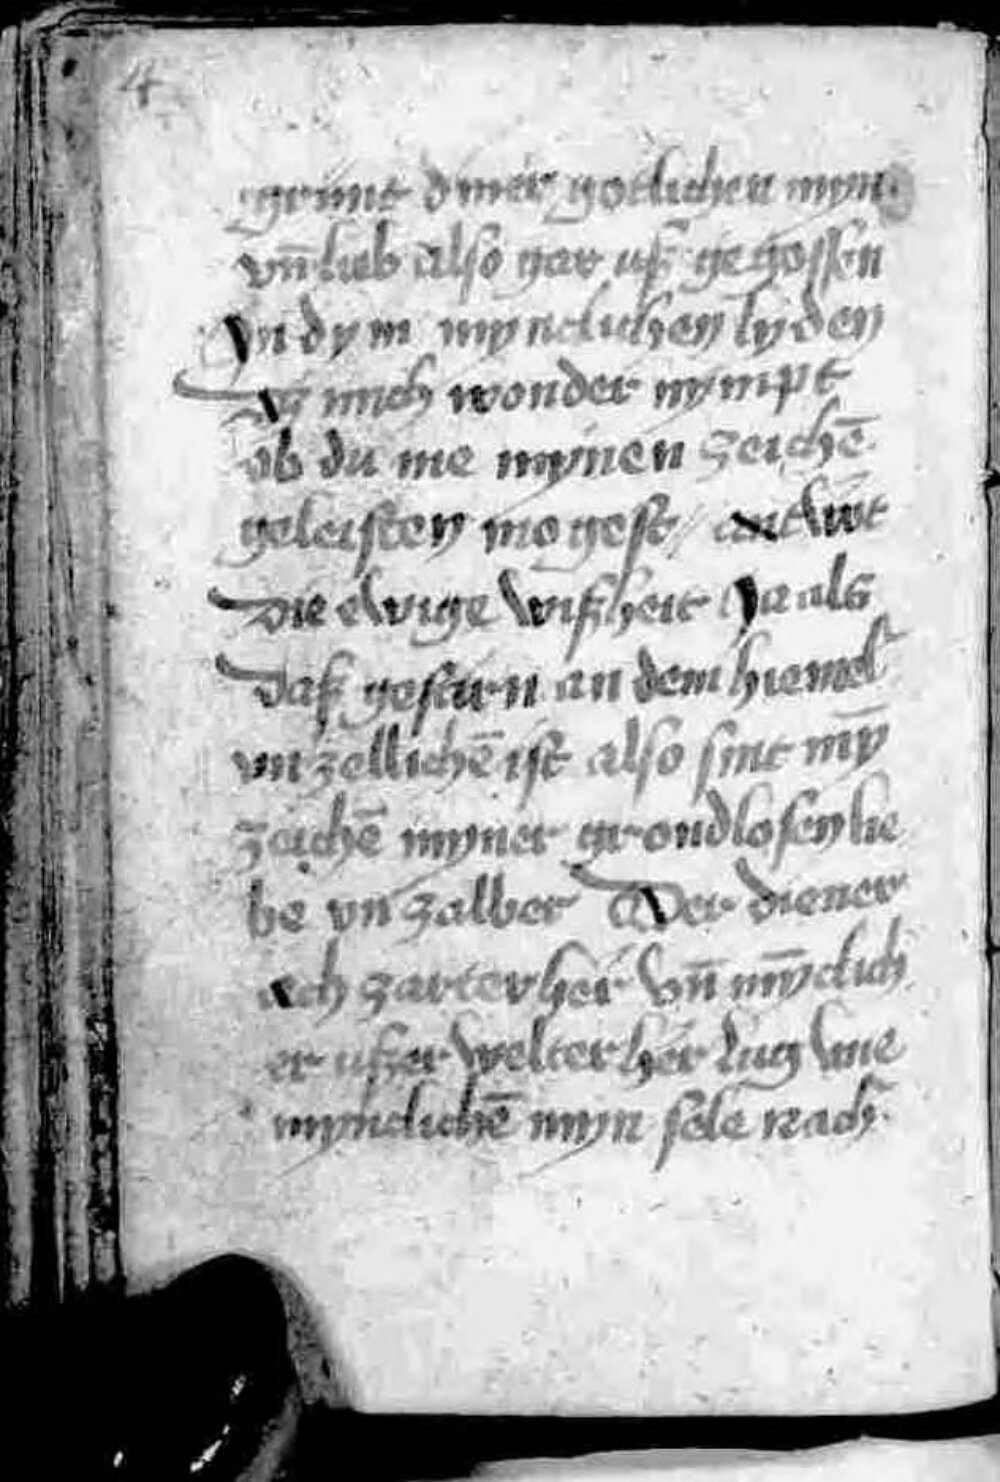 4
grunt diner gotlichen myn
vn̄ lieb also gar uß gegossen
In dym mynclichen lyden
Dz mich wonder nympt
ob du me mynen zeichē
geleisten mogest // antwůt
Die ewige wißheit Ja als
Daß gestirn an dem hiemel
vnzellichē ist also sint mȳ
zeichē myner grondlosen lie
be vnzalber Der diener
ach zarter her vn̄ mȳclich
er ußer welter her lug wie
mynclichē myn sele nach